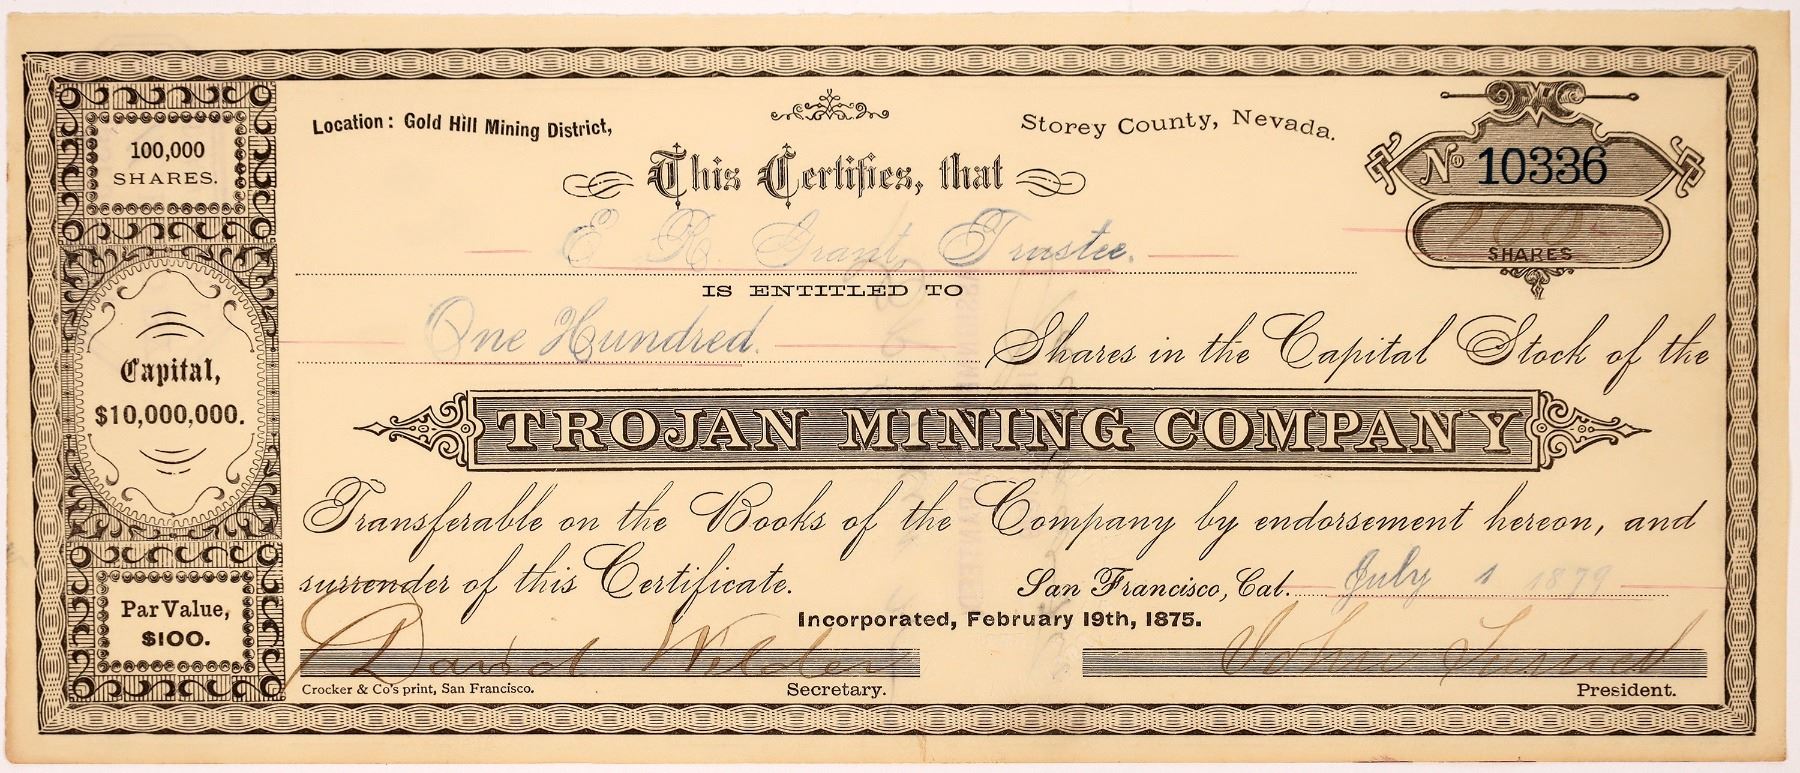 100,000
SHARES.
Capital,
$10,000,000.
Par Value,
$100.
Location: Gold Hill Mining District,
Storey County, Nevada.
No 10336
This Certifies, that
100
SHARES
E R. Grant, Trustee.
IS ENTITLED TO
One Hundred. Shares in the Capital Stock of the
TROJAN MINING COMPANY
Transferable on the Books of the Company by endorsement hereon, and
surrender of this Certificate. San Francisco, Cal. July 1 1879
Incorporated, February 19th, 1875.
David Wilder John
Crocker & Co's print, San Francisco. Secretary. President.